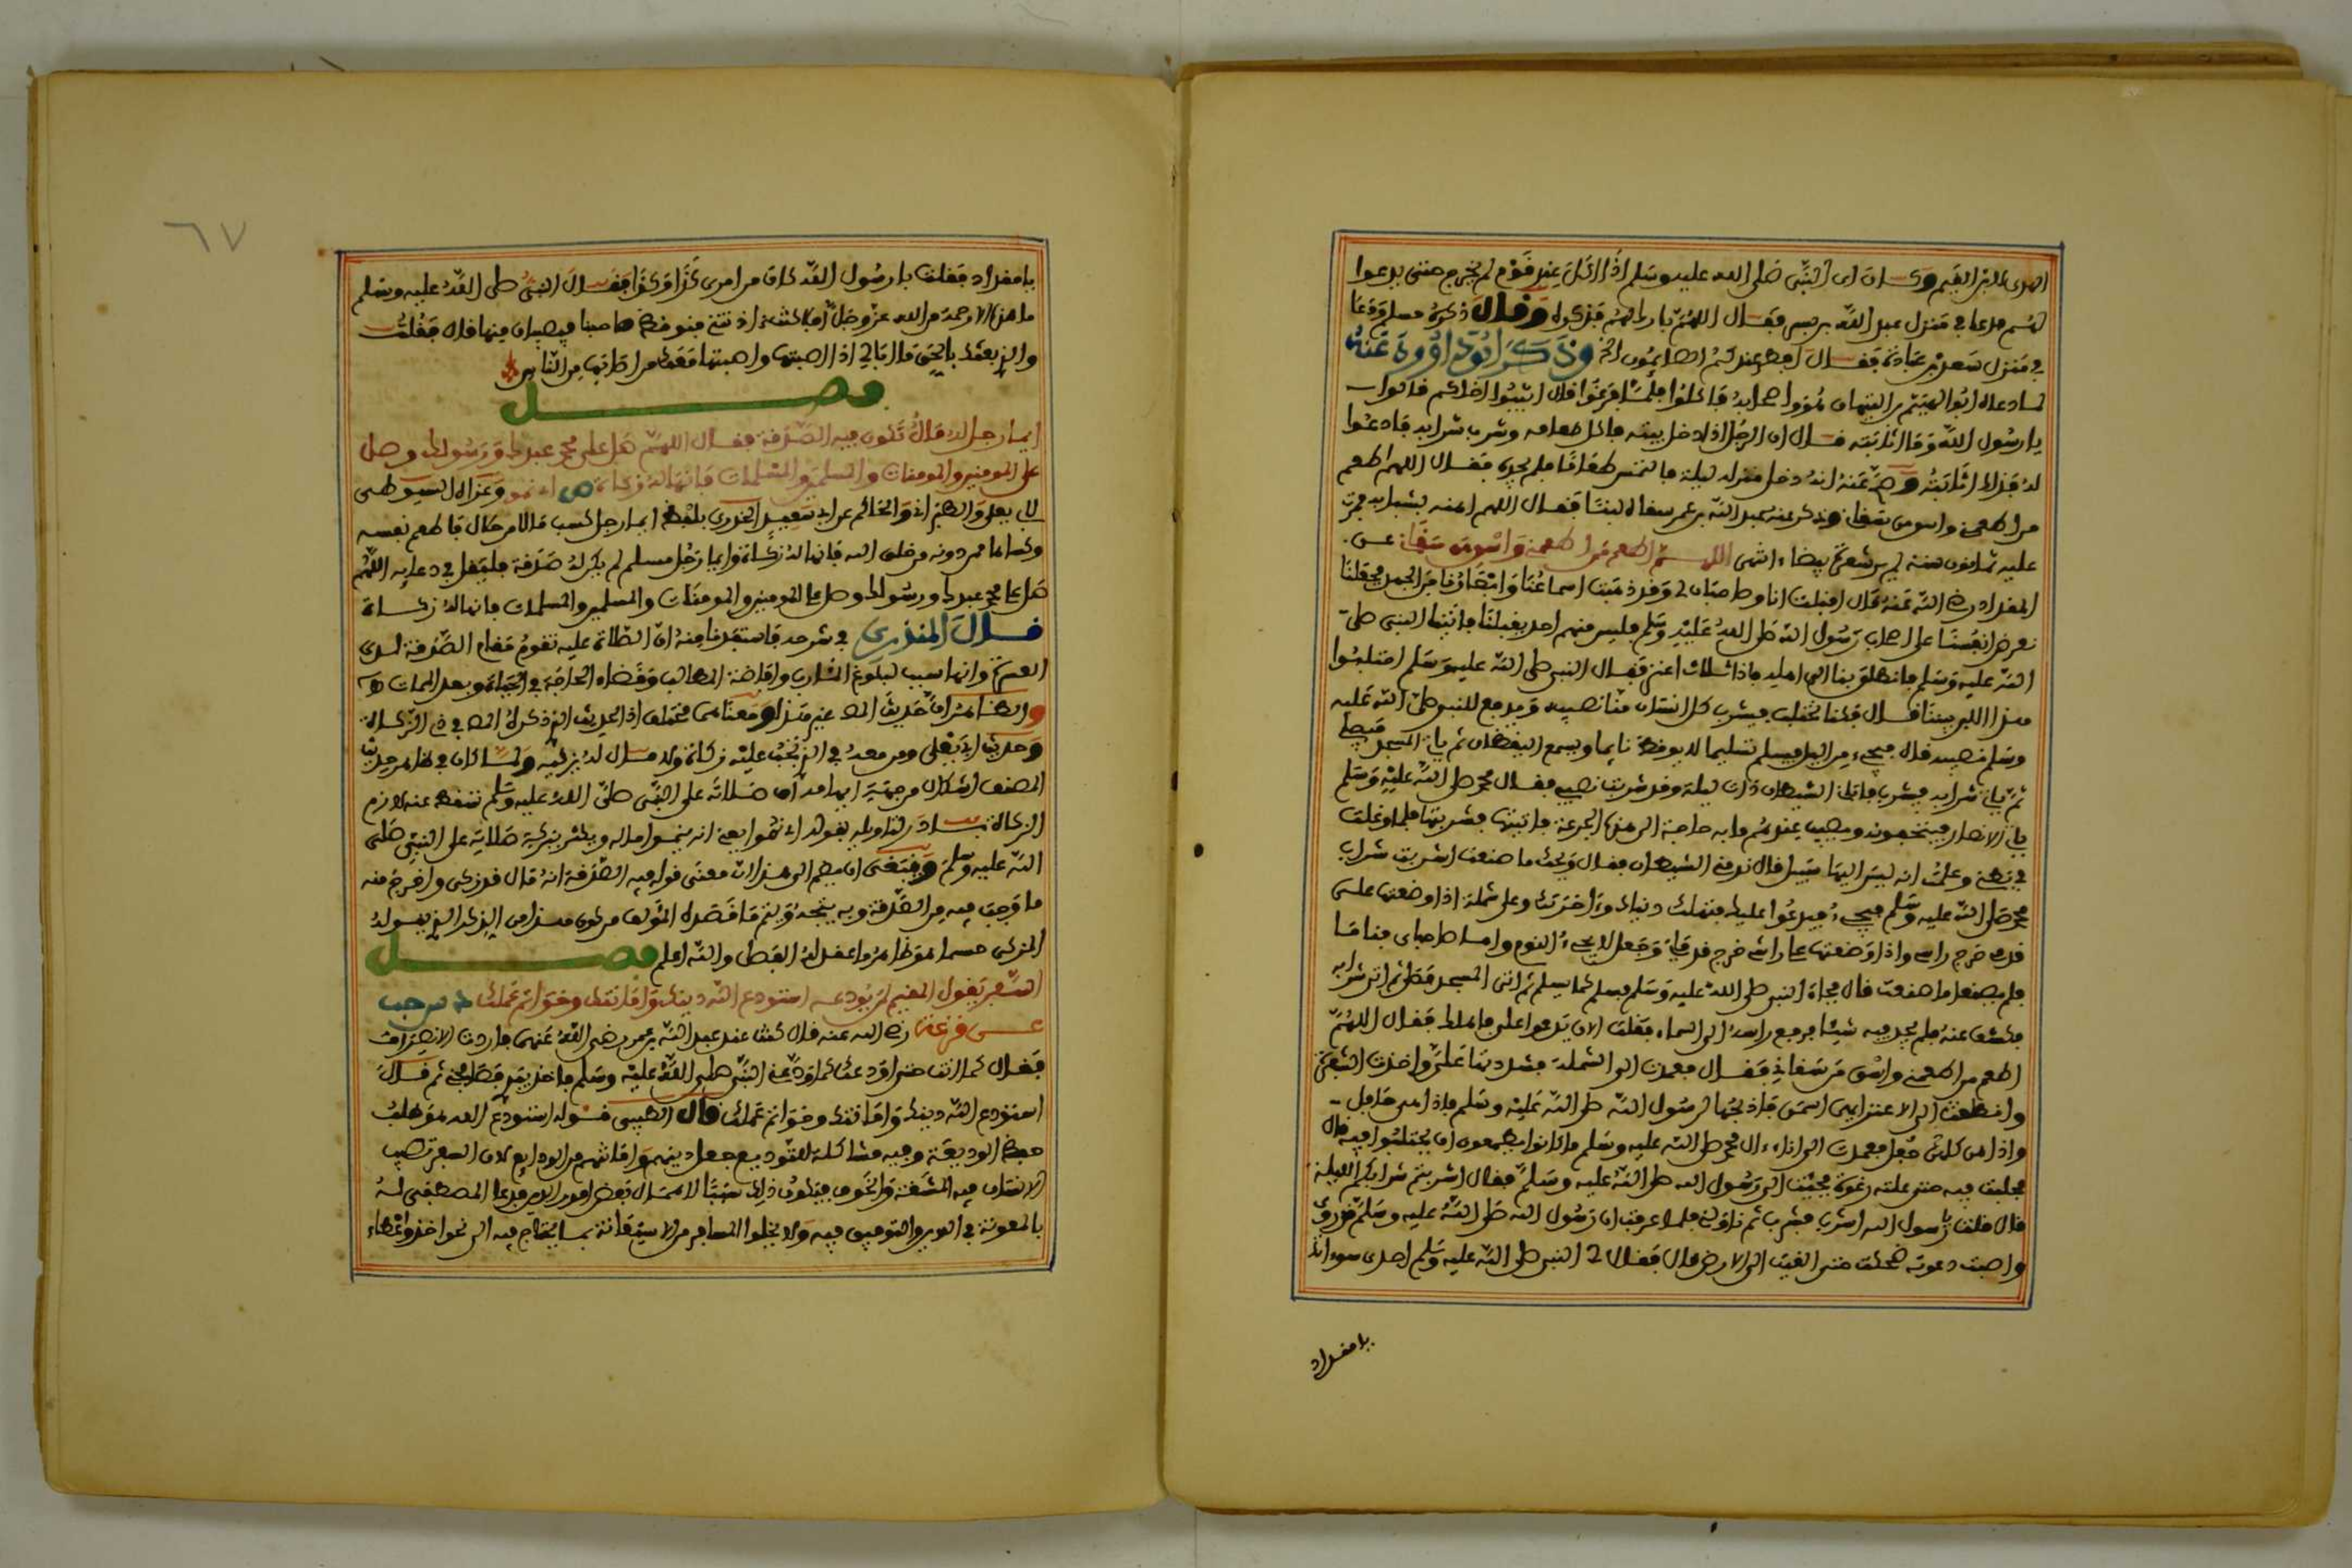 الهدى لابن القيم وكان اى النبي صلى الله عليه وسلم اذا اكل عند قوم لم يخرج حتى يدعوا
لهم فدعا في منزل عبد الله بن بسر فقال اللهم بارك لهم فذكره وقال ذكره مسلم ودعا
في منزل سعد بن عبادة فقال افطر عندكم الصائمون الخ وذكر ابو داوود عنه
لما دعاه ابو الهيثم بن التيهان هو واصحابه فاكلوا فلما فرغوا قال اثيبوا اخاكم قالوا
يا رسول الله وما اثابته قال ان الرجل اذا دخل بيته فاكل طعامه وشرب شرابه فادعوا
له فذلك اثابته وصح عنه انه دخل منزله ليلة فالتمس طعاما فلم يجده فقال اللهم اطعم
من اطعمني واسق من سقاني وذكر عنه عبد الله بن عمر سقاه لبنا فقال اللهم امتعه بشبابه فمرت
عليه ثمانون سنة لم ير شعرة بيضاء انتهى اللهم اطعم من اطعمني واسق من سقاني عن
المقداد رضي الله عنه قال اقبلت انا وصاحبان لي وقد ذهبت اسماعنا وابصارنا من الجهد فجعلنا
نعرض انفسنا على اصحاب رسول الله صلى الله عليه وسلم فليس منهم احد يقبلنا فاتينا النبي صلى
الله عليه وسلم فانطلق بنا الى اهله فاذا ثلاث اعنز فقال النبي صلى الله عليه وسلم احتلبوا
هذا اللبن بيننا قال فكنا نحتلب فيشرب كل انسان منا نصيبه ويرفع للنبي صلى الله عليه
وسلم نصيبه قال فيجيء من الليل فيسلم تسليما لا يوقظ نايما ويسمع اليقظان ثم ياتي المسجد فيصلي
ثم ياتي شرابه فيشرب فاتاني الشيطان ذات ليلة وقد شربت نصيبي فقال محمد صلى الله عليه وسلم
ياتي الانصار فيتحفونه ويصيب عندهم ما به حاجة الى هذه الجرعة فاتيتها فشربتها فلما وغلت
في بطني وعلمت انه ليس اليها سبيل قال ندمني الشيطان فقال ويحك ما صنعت اشربت شراب
محمد صلى الله عليه وسلم فيجيء فيدعوا عليك فتهلك دنياك وءاخرتك وعلي شملة اذا وضعتها على
قدمي خرج راسي واذا وضعتها على راسي خرج قدماي وجعل لا يجيء النوم واما صاحباي فناما
فلم يصنعا ما صنعت قال فجاء النبي صلى الله عليه وسلم فسلم كما يسلم ثم اتى المسجد فصلى ثم اتى شرابه
فكشف عنه فلم يجد فيه شيئا فرفع راسه الى السماء فقلت الان يدعوا علي فاهلك فقال اللهم
اطعم من اطعمني واسق من سقاني فقال فعمدت الى الشملة فشددتها علي واخذت الشفرة
وانطلقت الى الاعنز ايهن اسمن فاذبحها لرسول الله صلى الله عليه وسلم فاذا هي حافل
واذا هن كلهن حفل فعمدت الى اناء ءال محمد صلى الله عليه وسلم ما كانوا يطمعون ان يحتلبوا فيه قال
فحلبت فيه حتى علته رغوة فجئت الى رسول الله صلى الله عليه وسلم فقال اشربتم شرابكم الليلة
قال قلت يا رسول الله اشرب فشرب ثم ناولني فلما عرفت ان رسول الله صلى الله عليه وسلم قد روي
واصبت دعوته ضحكت حتى القيت الى الارض قال فقال لي النبي صلى الله عليه وسلم احدى سوءاتك
يا مقداد
٦٧
يا مقداد فقلت يا رسول الله كان من امرى كذا وكذا فقال النبي صلى الله عليه وسلم
ما هذه الا رحمة من الله عز وجل افلا كنت اذنتني فنوقظ صاحبنا فيصيبان منها قال فقلت
والذي بعثك بالحق ما ابالي اذا اصبتها واصبتها معك من اصابها من الناس
فصل
ايما رجل له مال تكون فيه الصدقة فقال اللهم صل على محمد عبدك ورسولك وصل
على المومنين والمومنات والمسلمين والمسلمات فانها له زكاة ص اى نمو وعزاه السيوطي
لابي يعلى والطبراني والحاكم عن ابي سعيد الخدري بلفظ ايما رجل كسب مالا من حلال فاطعم نفسه
وكساها فمن دونه من خلق الله فانها له زكاة وايما رجل مسلم لم يكن له صدقة فليقل في دعايه اللهم
صل على محمد عبدك ورسولك وصل على المومنين والمومنات والمسلمين والمسلمات فانها له زكاة
قال المنذري في شرحه فاستفدنا منه ان الصلاة عليه تقوم مقام الصدقة لدى
العسرة وانها سبب لبلوغ المئارب وافاضة المطالب وقضاء الحاجة في الحياة وبعد الممات
الزكاة بادر لتاويله بقوله اى نمو ايعني انه ينموا ماله ويكثر ببركة صلاته على النبي صلى
الله عليه وسلم ومقتضى ان يضم الى هذا ان معنى قوله فيه الصدقة انه قال قد زكى واخرج منه
ما وجب فيه من الصدقة وبه يتجه ويتم ما قصده المؤلف من كون هذا من الذكر الذي يقوله
المزكى حسبما هو ظاهر واعضل له القطب والله اعلم فصل
السفر يقول المقيم لمن يودعه استودع الله دينك وامانتك وخواتم عملك د س حب
عن قزعة رضي الله عنه قال كنت عند عبد الله بن عمر رضي الله عنهما فاردت الانصراف
فقال كما انت حتى اودعك كما ودعني النبي صلى الله عليه وسلم فاخذ بيدي فصافحني ثم قال
استودع الله دينك وامانتك وخواتم عملك قال الطيبي قوله استودع الله هو طلب
حفظ الوديعة وفيه مشاكلة للتوديع جعل دينهم وامانتهم من الودايع لان السفر يصيب
الانسان فيه المشقة والخوف فيكون ذلك سببا لاهمال بعض امور الدين فدعا المصطفى له
بالمعونة في الدين والتوفيق فيه ولا يخلوا المسافر من الاستعانة بما يحتاج فيه الى نحو اخذ واعطاء